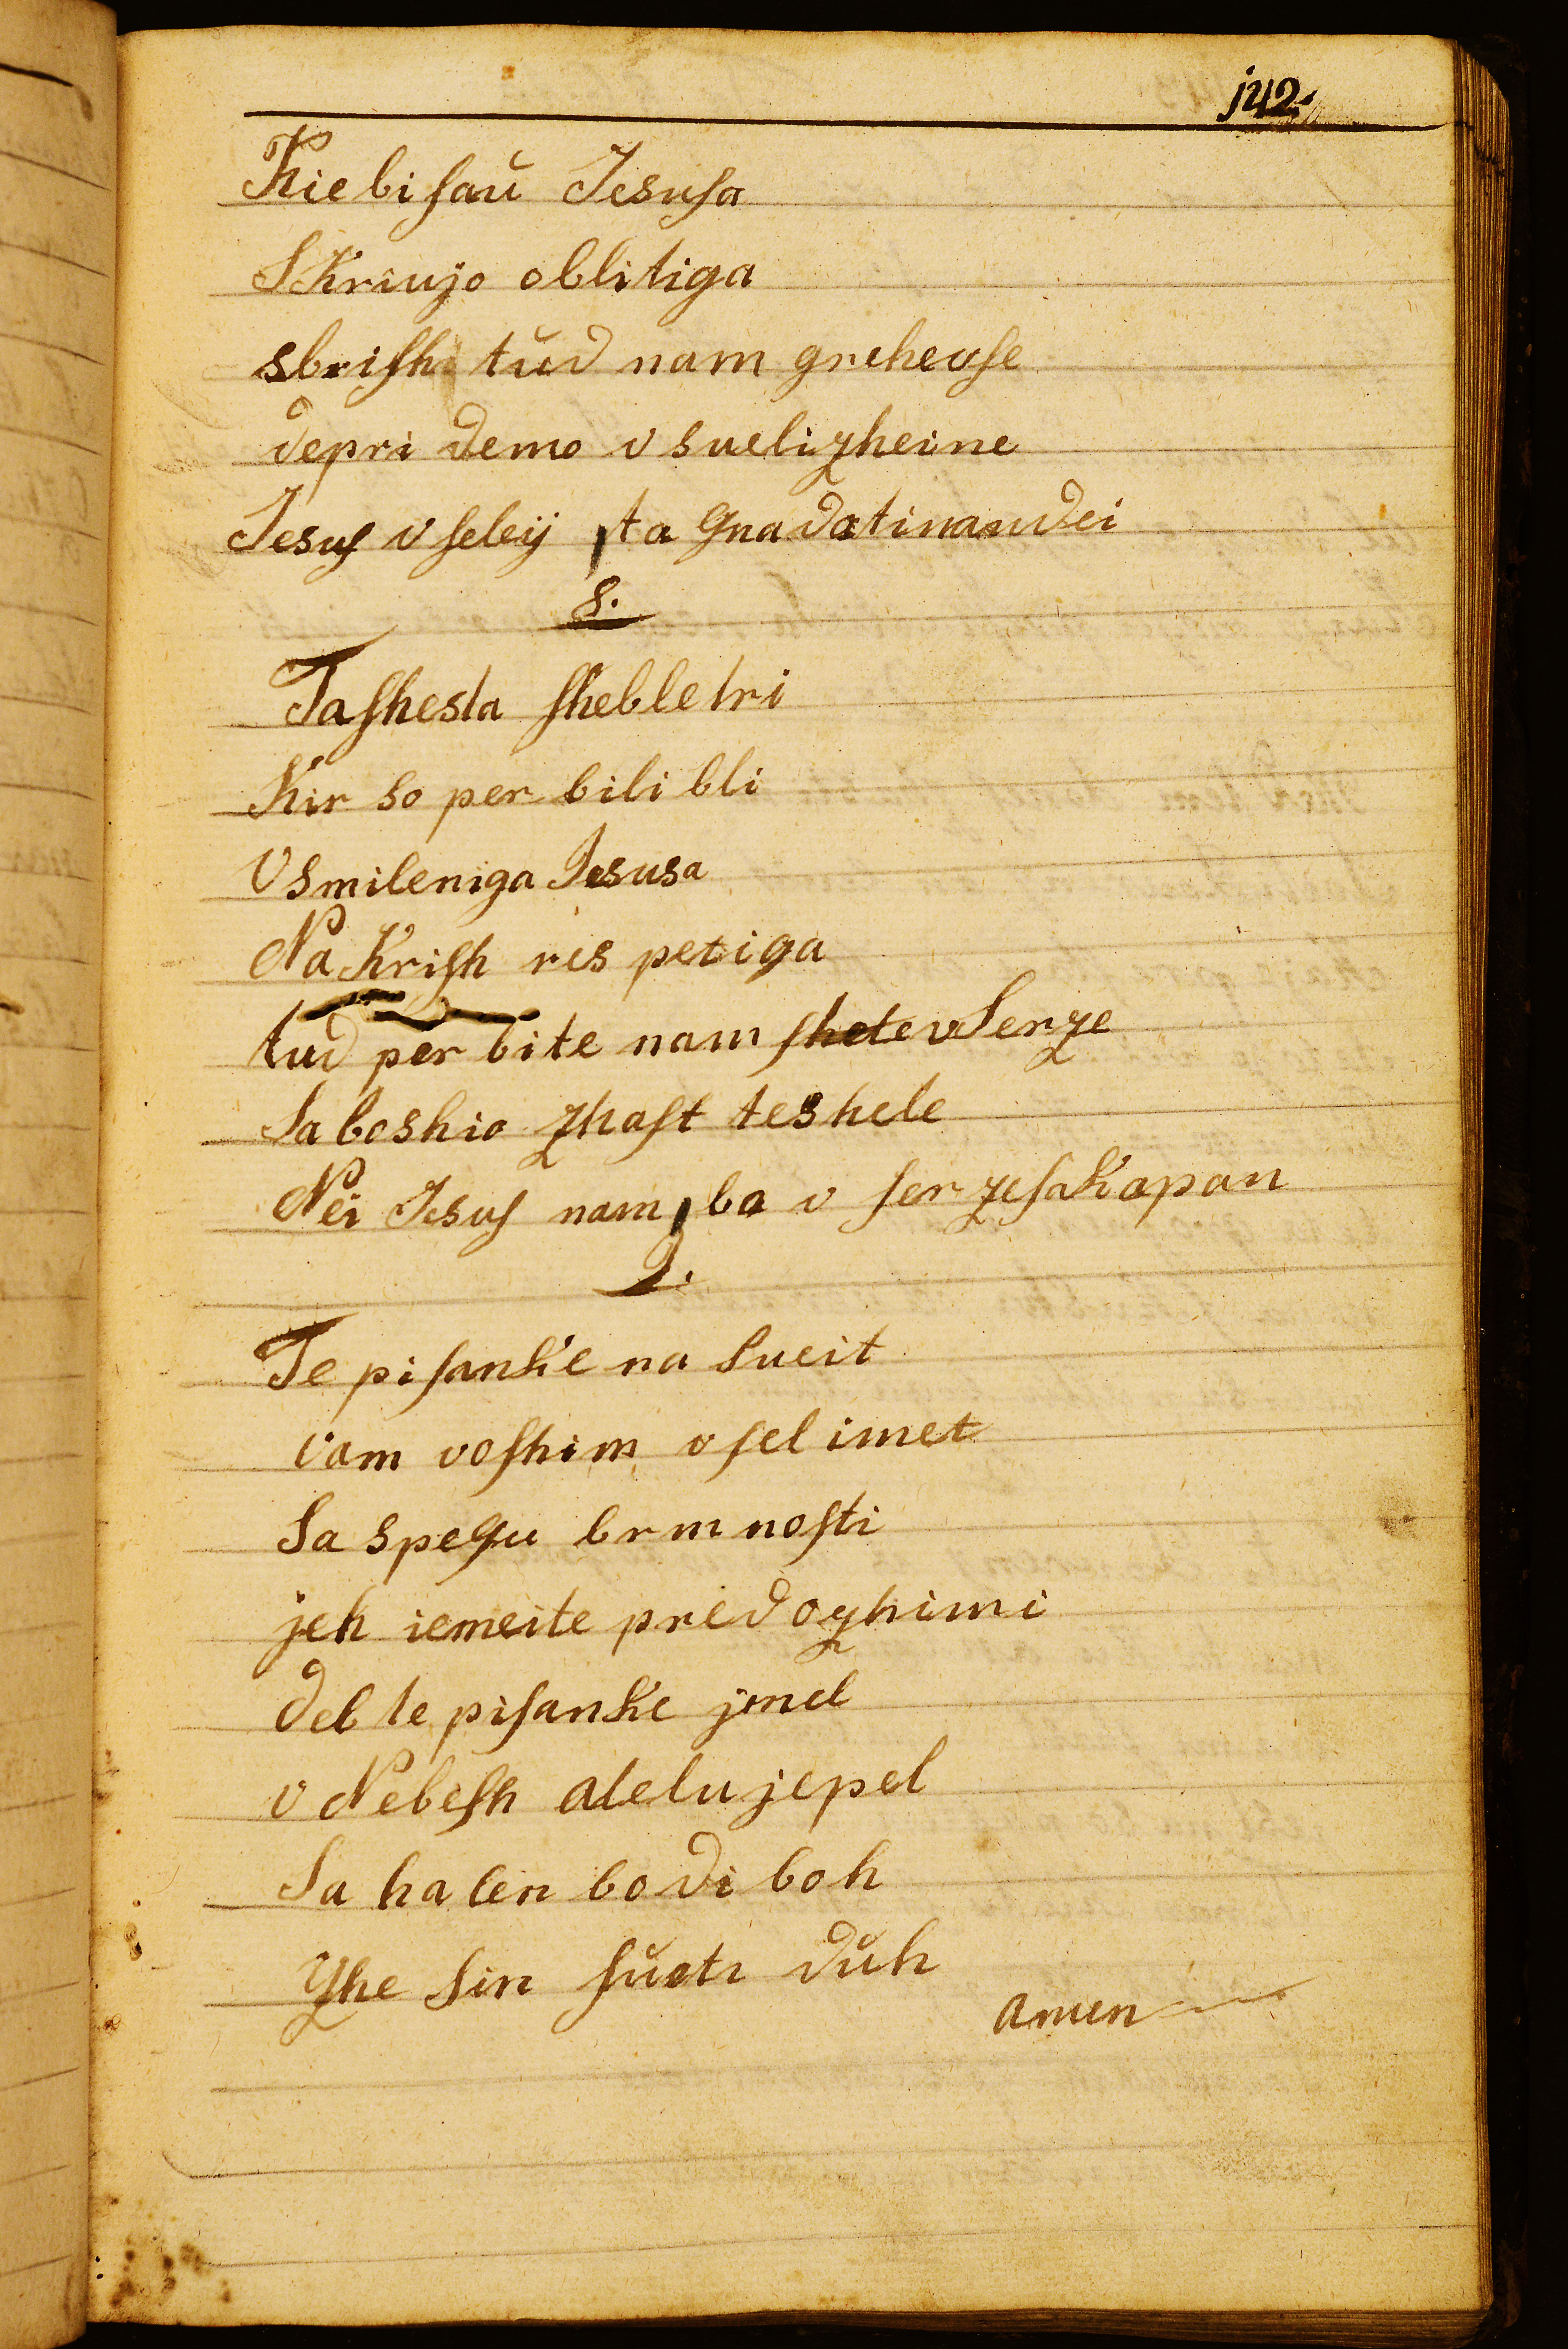 j42.
Kie bi sau̇ Jesusa
SKriujo oblitiga
sbrish tud nam greheuse
depri demo v sueligheine
Jesus v seleij ta Gnadatinamdei
8.
Ta shesta shebletri
Kir so per bili bli
Vsmileniga Jesusa
Na Krish res petiga
tud per bite nam shete vSerze
Sa boshio zhast teshele
Nei Jesus nam ba v ser zesakapan
9.
Te pisanke na Sueit
vam voshim vsel imet
Sa spegu brmnosti
jeh iemeite predozhimi
del te pisanke jmel
v Nebesh alelujepel
Sa ha len bodi boh
Zhe Sin sueti duh
amen